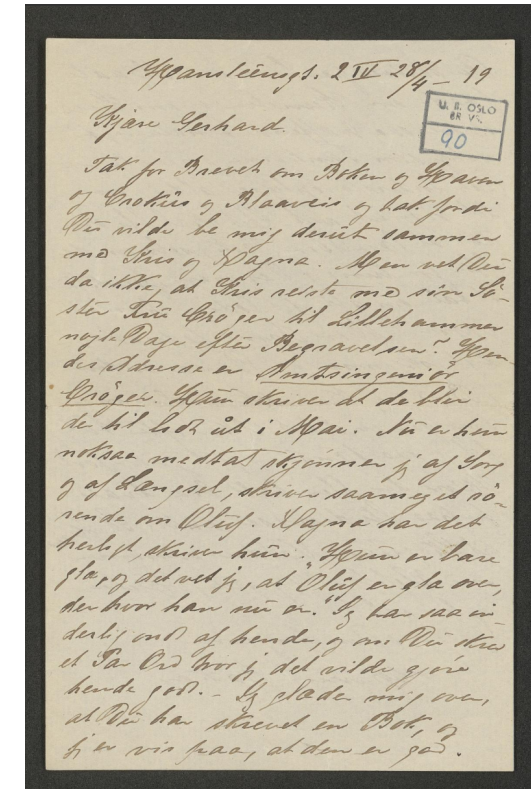 Hansteensgt. 2 IV 28/4 - 19
U. B. OSLO
BR. VS.
90
Kjære Gerhard.
Tak for Brevet om Boken og Haven
og Crokus og Blaaveis og tak fordi
Du vilde be mig derut sammen
me Kris og Magna. Men vet Du
da ikke, at Kris reiste me sin Sö-
ster Fru Cröger til Lillehammer
nogle Dage efter Begravelsen? Hen-
des Adresse er Amtsingeniör
Cröger. Hun skriver at de blir
der til lidt ut i Mai. Nu er hun
noksaa medtat skjönner jg af Sorg
og af Længsel, skriver saameget rö-
rende om Oluf. Magna har det
herligt, skriver hun. "Hun er bare
gla, og det vet jg, at Oluf er gla over,
der hvor han nu er." Jg har saa in-
derlig ondt af hende, og om Du skrev
et Par Ord tror jg det vilde gjöre
hende godt. - Jg glæder mig over,
at Du har skrevet en Bok, og
jg er vis paa, at den er god.